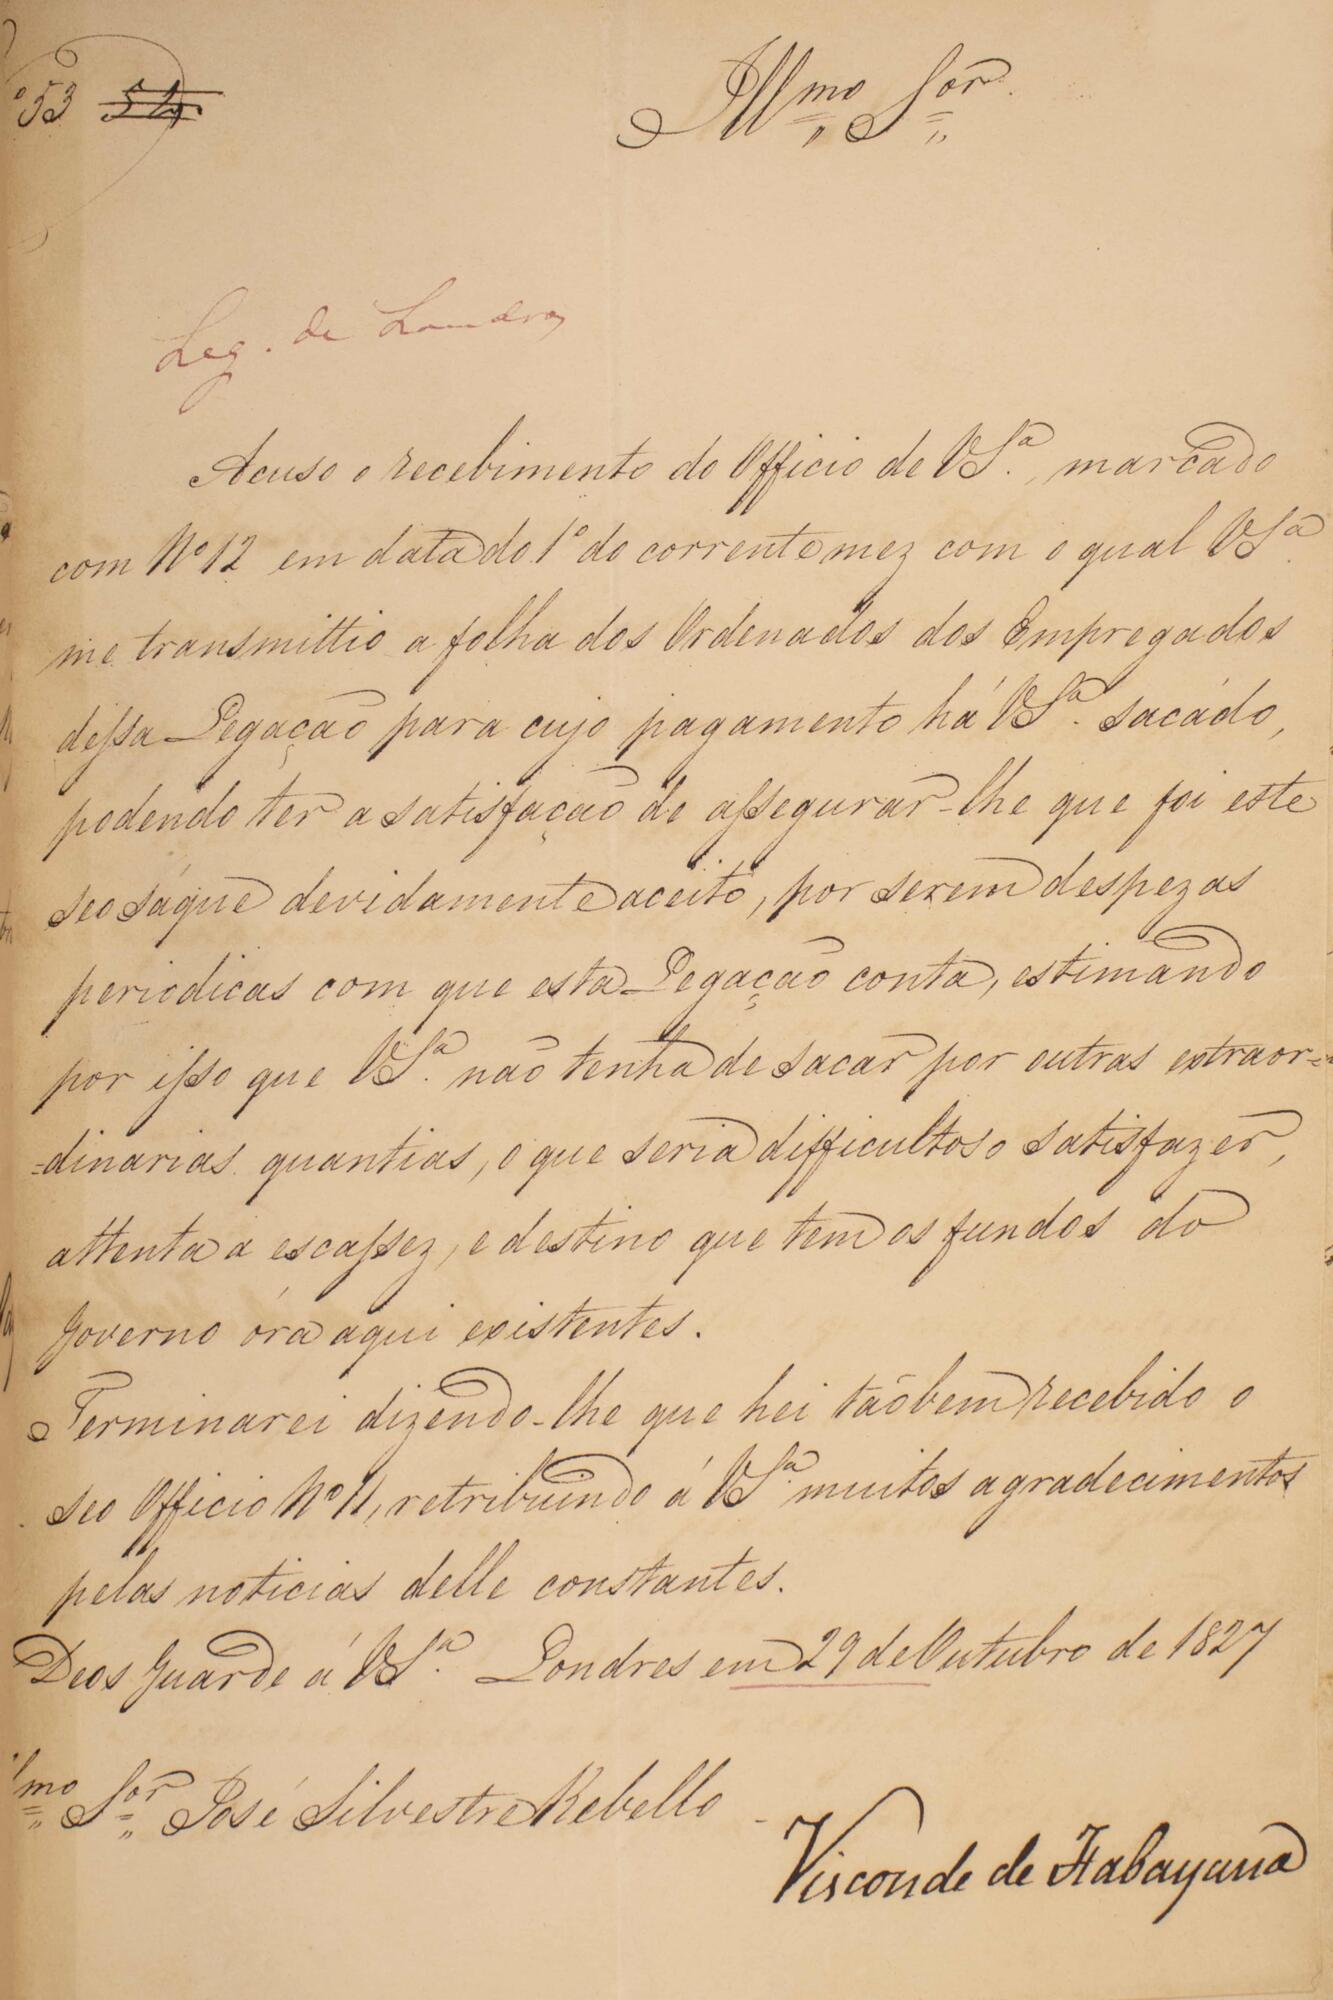 º 53 54.
Illmo Sor.
Leg. de Londres
Acuso o recebimento do Officio de VSª. marcado
com Nº 12 em data do 1º do corrente mez com o qual VSª.
me transmittio a folha dos Ordenados dos Empregados
dessa Legação para cujo pagamento há VSª. sacádo,
podendo ter a satisfação de assegurar-lhe que foi este
seo sáque devidamente aceito, por serem despezas
periodicas com que esta Legação conta, estimando
por isso que VSª. não tenha de sacar por outras extraor=
=dinarias quantias, o que seria difficultoso satisfazer,
attenta a escassez, e destino que tem os fundos do
Governo óra aqui existentes.
Terminarei dizendo-lhe que hei tãobem recebido o
seo Officio Nº 11, retribuindo á VSª. muitos agradecimentos
pelas noticias delle constantes.
Deos Guarde á VSª. Londres em 29 de Outubro de 1827
lmo Sor José Silvestre Rebello
Visconde de Itabayana